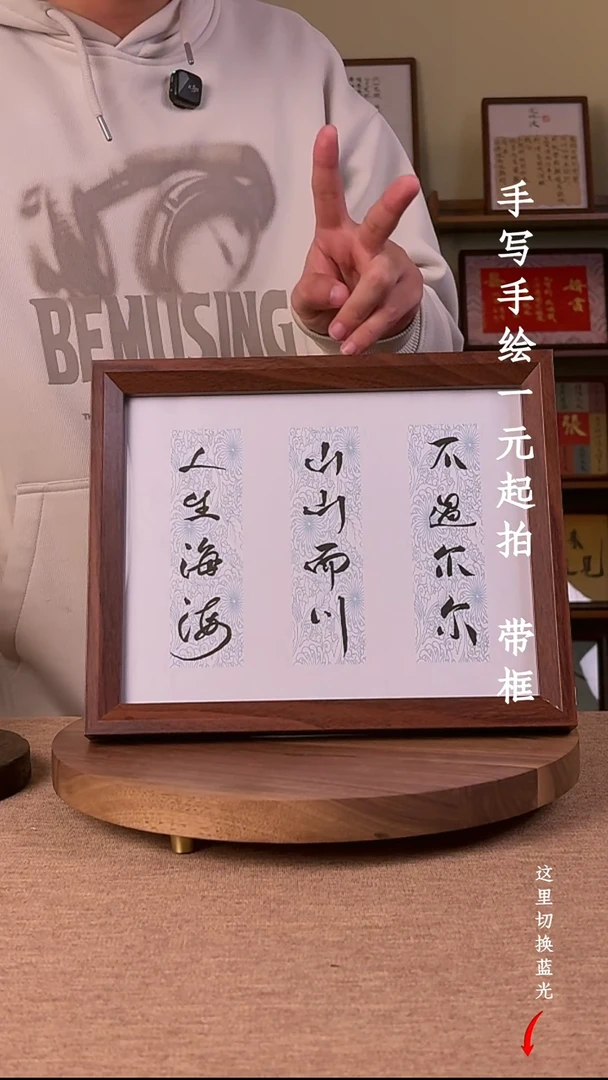 BEMUSING
人生海海
山山而川
不過尔尔
手写手绘一元起拍 带框
这里切换蓝光
张